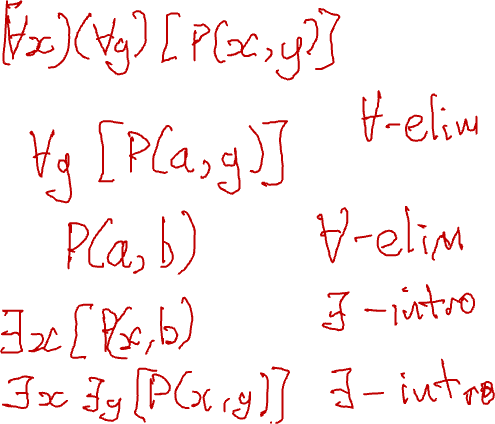 (∀x)(∀y)[P(x,y)]
∀y[P(a,y)] ∀-elim
P(a,b) ∀-elim
∃x[P(x,b) ∃-intro
∃x∃y[P(x,y)] ∃-intro